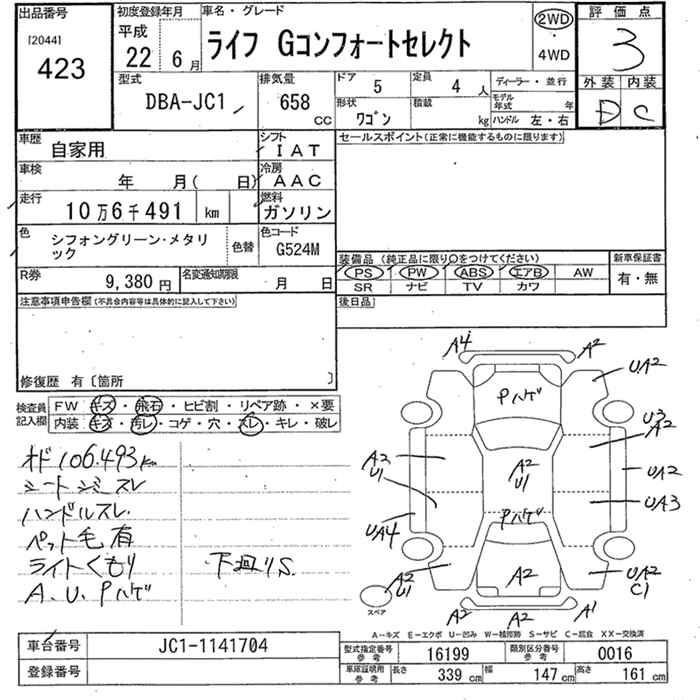 出品番号
[2044]
423
初度登録年月
平成
22 6月
車名・グレード
ライフ Gコンフォートセレクト
2WD
・
4WD
評価点
3
外装 内装
D C
型式
DBA-JC1
排気量
658 CC
ドア 5
定員 4 人
形状 ワゴン
積載 kg
ディーラー・並行
モデル年式 年
ハンドル 左・右
車歴 自家用
シフト IAT
車検 年 月( 日)
冷房 AAC
走行 10万6千491 km
燃料 ガソリン
色 シフォングリーン・メタリ
ック
色替
色コード G524M
R券 9,380円
名変通知期限 月 日
セールスポイント(正常に機能するものに限ります)
装備品(純正品に限り○をつけてください)
PS PW ABS エアB AW
SR ナビ TV カワ
新車保証書
有・無
後日品
注意事項申告欄(不具合内容等は具体的に記入して下さい)
修復歴 有〔箇所 〕
検査員
記入欄
FW キズ・飛石・ヒビ割・リペア跡・×要
内装 キズ・汚レ・コゲ・穴・スレ・キレ・破レ
オド106.493km
シートシミスレ
ハンドルスレ.
ペット毛有
ライトくもり
下廻りS.
A.U.Pハゲ
A4 A2
Pハゲ
UA2
U3
A2
A2
U1
A2
U1
UA2
UA3
UA4
Pハゲ
A2
A2
U1
UA2
C1
スペア
A2 A1
A−キズ E−エクボ U−凹み W−補修跡 S−サビ C−腐食 XX−交換済
車台番号 JC1-1141704
登録番号
型式指定番号
参考
16199
類別区分番号
参考
0016
車庫証明用
参考
長さ 339 cm
幅 147 cm
高さ 161 cm